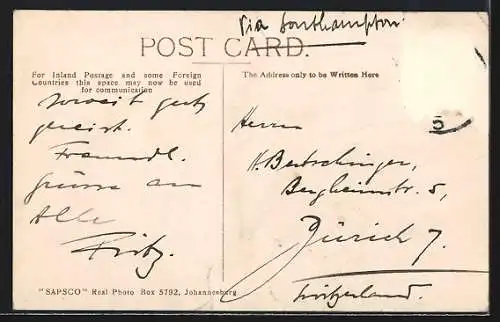 Via Southampton.
POST CARD.
For Inland Postage and some Foreign
Countries this space may now be used
for communication
The Address only to be Written Here
soweit gut
gereist.
Freundl.
Grüsse an
Alle
Fritz.
Herrn
H. Bertschinger,
Bergheimstr. 5,
Zürich 7.
Switzerland.
5
"SAPSCO" Real Photo Box 5792, Johannesburg